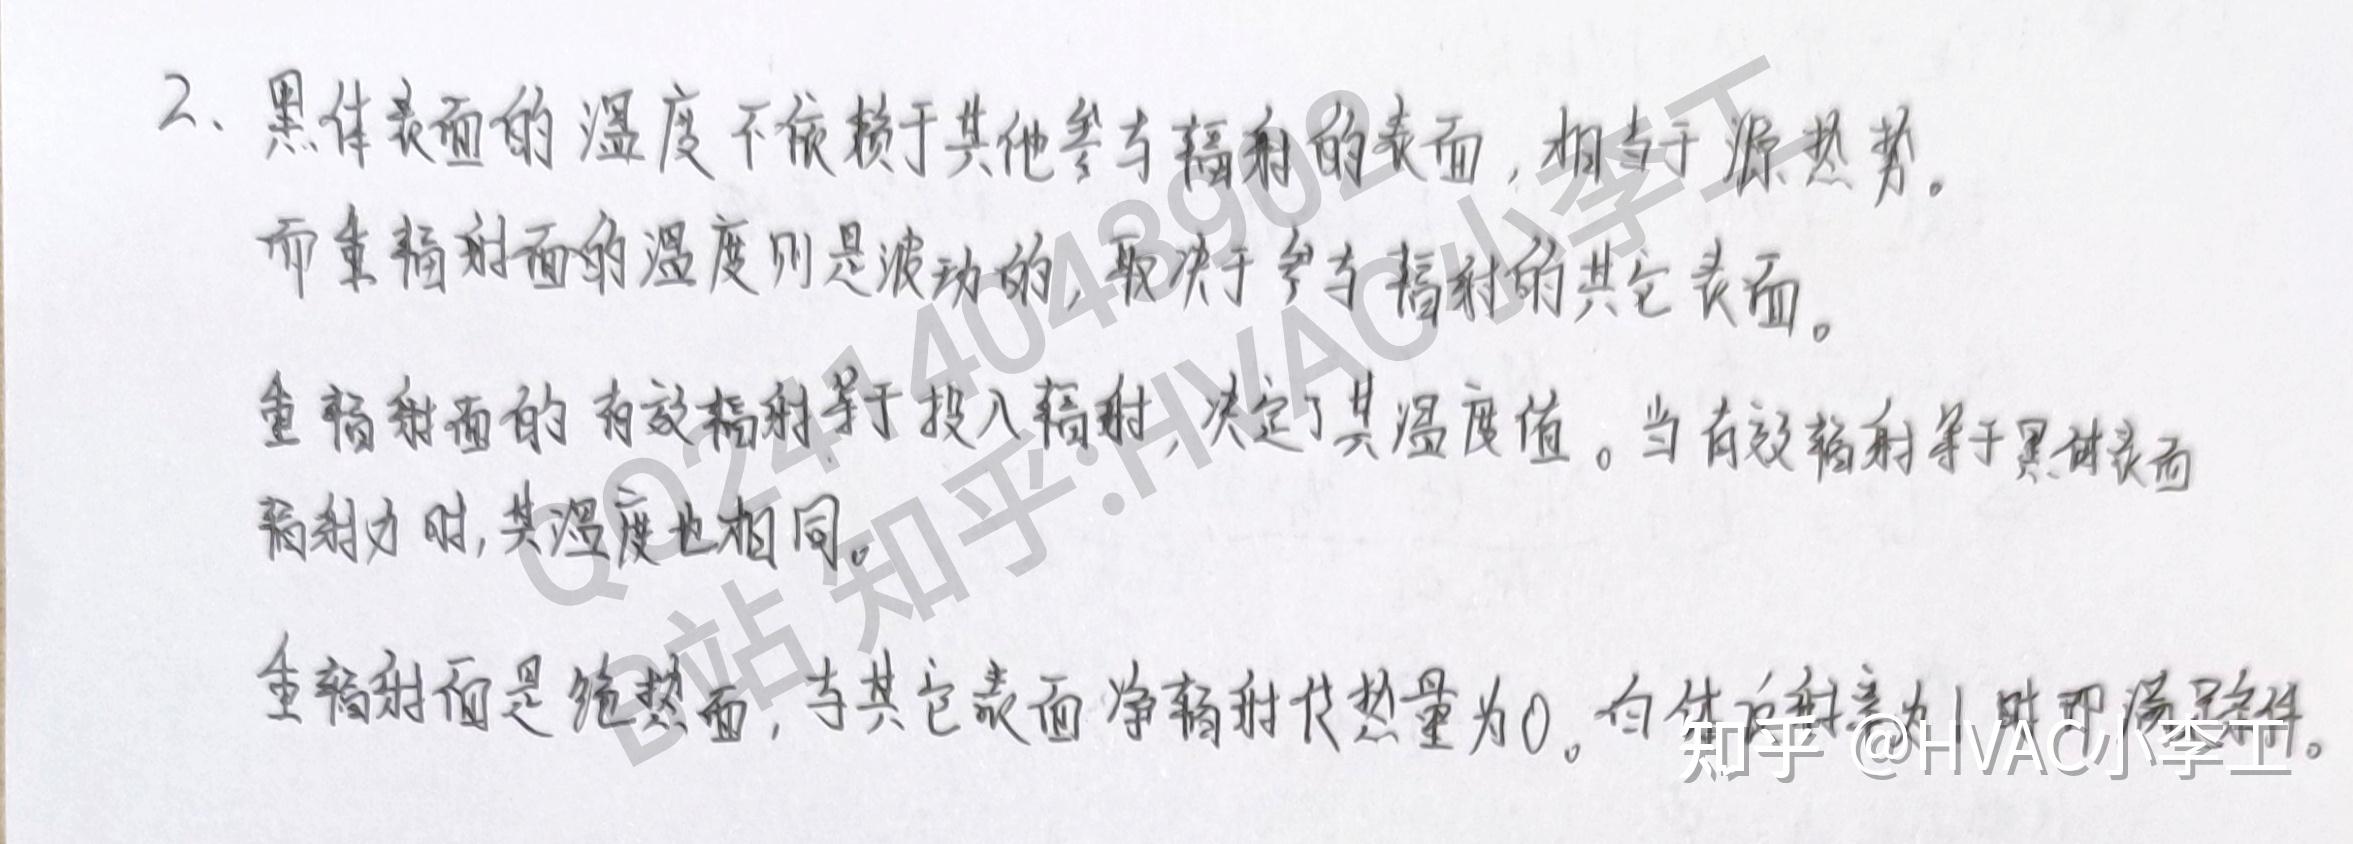 2、黑体表面的温度不依赖于其他参与辐射的表面，相当于源热势。
而重辐射面的温度则是波动的，取决于参与辐射的其它表面。
重辐射面的有效辐射等于投入辐射，决定了其温度值。当有效辐射等于黑体表面
辐射力时，其温度也相同。
重辐射面是绝热面，与其它表面净辐射传热量为0。白体反射率为1时即满足条件。
QQ2414043902
B站 知乎:HVAC小李工
知乎 @HVAC小李工